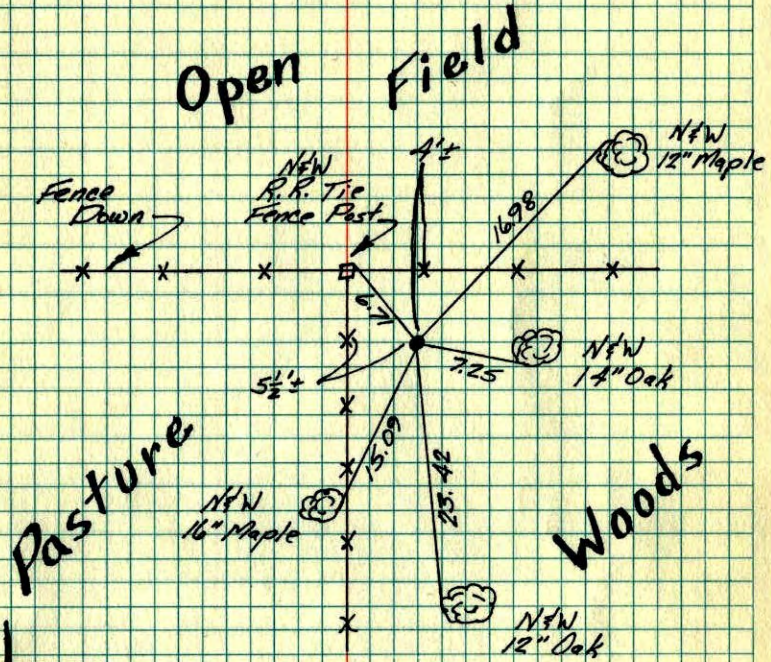 Open Field
4'±
N&W
12" Maple
N&W
R.R. Tie
Fence Post
Fence
Down
16.98
6.71
5½'±
7.25
N&W
14" Oak
15.09
23.42
Pasture
N&W
16" Maple
Woods
N&W
12" Oak